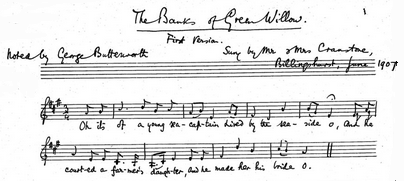 1
The Banks of Green Willow.
First Version.
Noted by George Butterworth Sung by Mr & Mrs Cranstone,
Billingshurst, June 1907
Oh its of a young sea-captain lived by the sea-side O, And he
court-ed a far-mer's daugh-ter, and he made her his bride O.